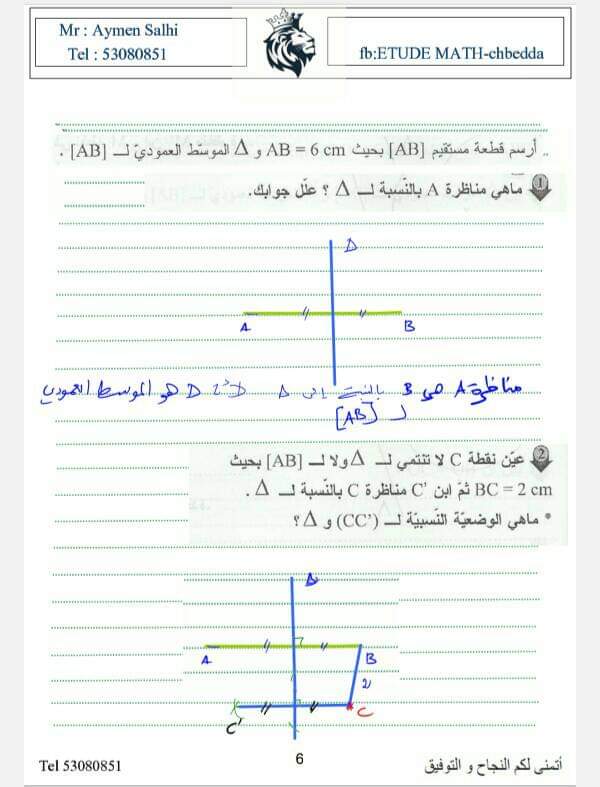 Mr : Aymen Salhi
Tel : 53080851
fb:ETUDE MATH-chbedda
.. أرسم قطعة مستقيم [AB] بحيث AB = 6 cm و Δ الموسّط العموديّ لــ [AB] .
1 ماهي مناظرة A بالنّسبة لــ Δ ؟ علّل جوابك.
Δ
A
B
مناظرة A هي B بالنسبة إلى Δ لأن Δ هو الموسط العمودي
لـ [AB]
2 عيّن نقطة C لا تنتمي لــ Δ ولا لــ [AB] بحيث
BC = 2 cm ثمّ ابن C' مناظرة C بالنّسبة لــ Δ .
* ماهي الوضعيّة النّسبيّة لــ (CC') و Δ ؟
Δ
A
B
2
C
C'
Tel 53080851
6
أتمنى لكم النجاح و التوفيق